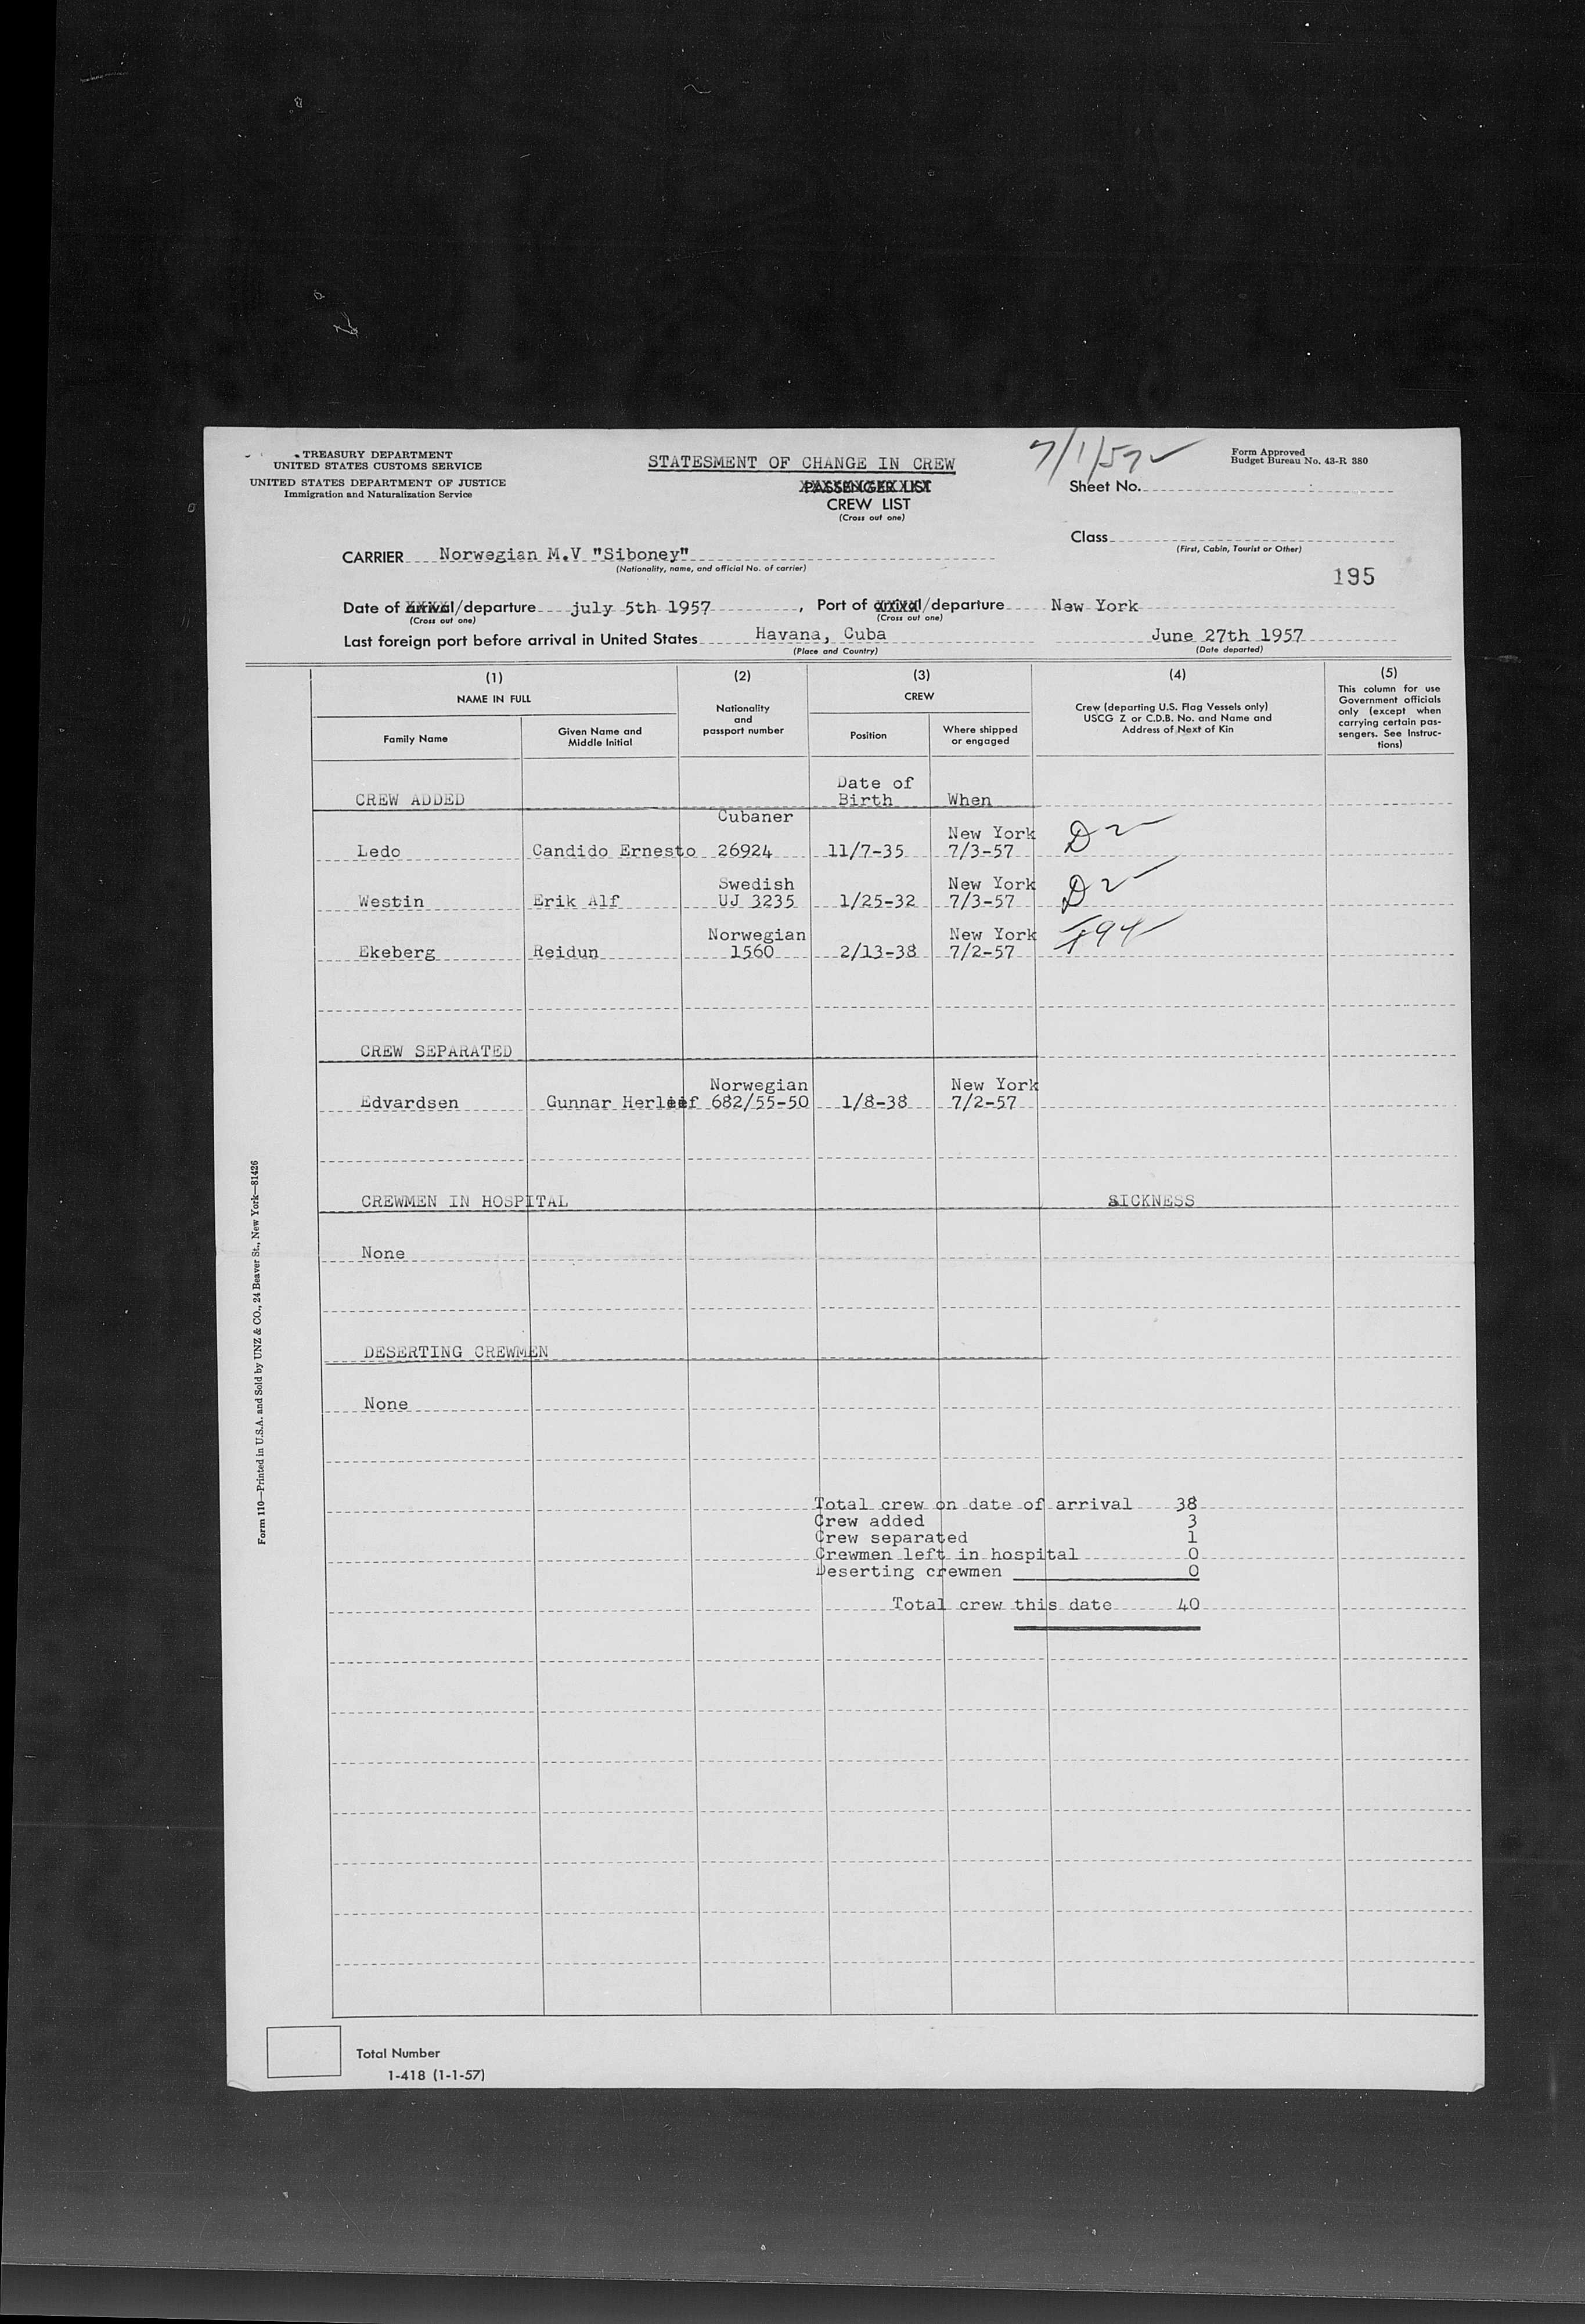 TREASURY DEPARTMENT
UNITED STATES CUSTOMS SERVICE
UNITED STATES DEPARTMENT OF JUSTICE
Immigration and Naturalization Service
STATESMENT OF CHANGE IN CREW
PASSENGER LIST
CREW LIST
(Cross out one)
7/1/57
Form Approved
Budget Bureau No. 43-R 380
Sheet No.
Class
(First, Cabin, Tourist or Other)
195
CARRIER Norwegian M.V "Siboney"
(Nationality, name, and official No. of carrier)
Date of arrival/departure july 5th 1957, Port of arrival/departure New York
(Cross out one) (Cross out one)
Last foreign port before arrival in United States Havana, Cuba June 27th 1957
(Place and Country) (Date departed)
(1) (2) (3) (4) (5)
NAME IN FULL
Family Name
Given Name and
Middle Initial
Nationality
and
passport number
CREW
Position
Where shipped
or engaged
Crew (departing U.S. Flag Vessels only)
USCG Z or C.D.B. No. and Name and
Address of Next of Kin
This column for use
Government officials
only (except when
carrying certain pas-
sengers. See Instruc-
tions)
Date of
CREW ADDED Birth When
Cubaner New York
Ledo Candido Ernesto 26924 11/7-35 7/3-57 D2
Swedish New York
Westin Erik Alf UJ 3235 1/25-32 7/3-57 D2
Norwegian New York
Ekeberg Reidun 1560 2/13-38 7/2-57
CREW SEPARATED
Norwegian New York
Edvardsen Gunnar Herleif 682/55-50 1/8-38 7/2-57
CREWMEN IN HOSPITAL SICKNESS
None
DESERTING CREWMEN
None
Total crew on date of arrival 38
Crew added 3
Crew separated 1
Crewmen left in hospital 0
Deserting crewmen 0
Total crew this date 40
Form 110—Printed in U.S.A. and Sold by UNZ & CO., 24 Beaver St., New York—81426
Total Number
1-418 (1-1-57)